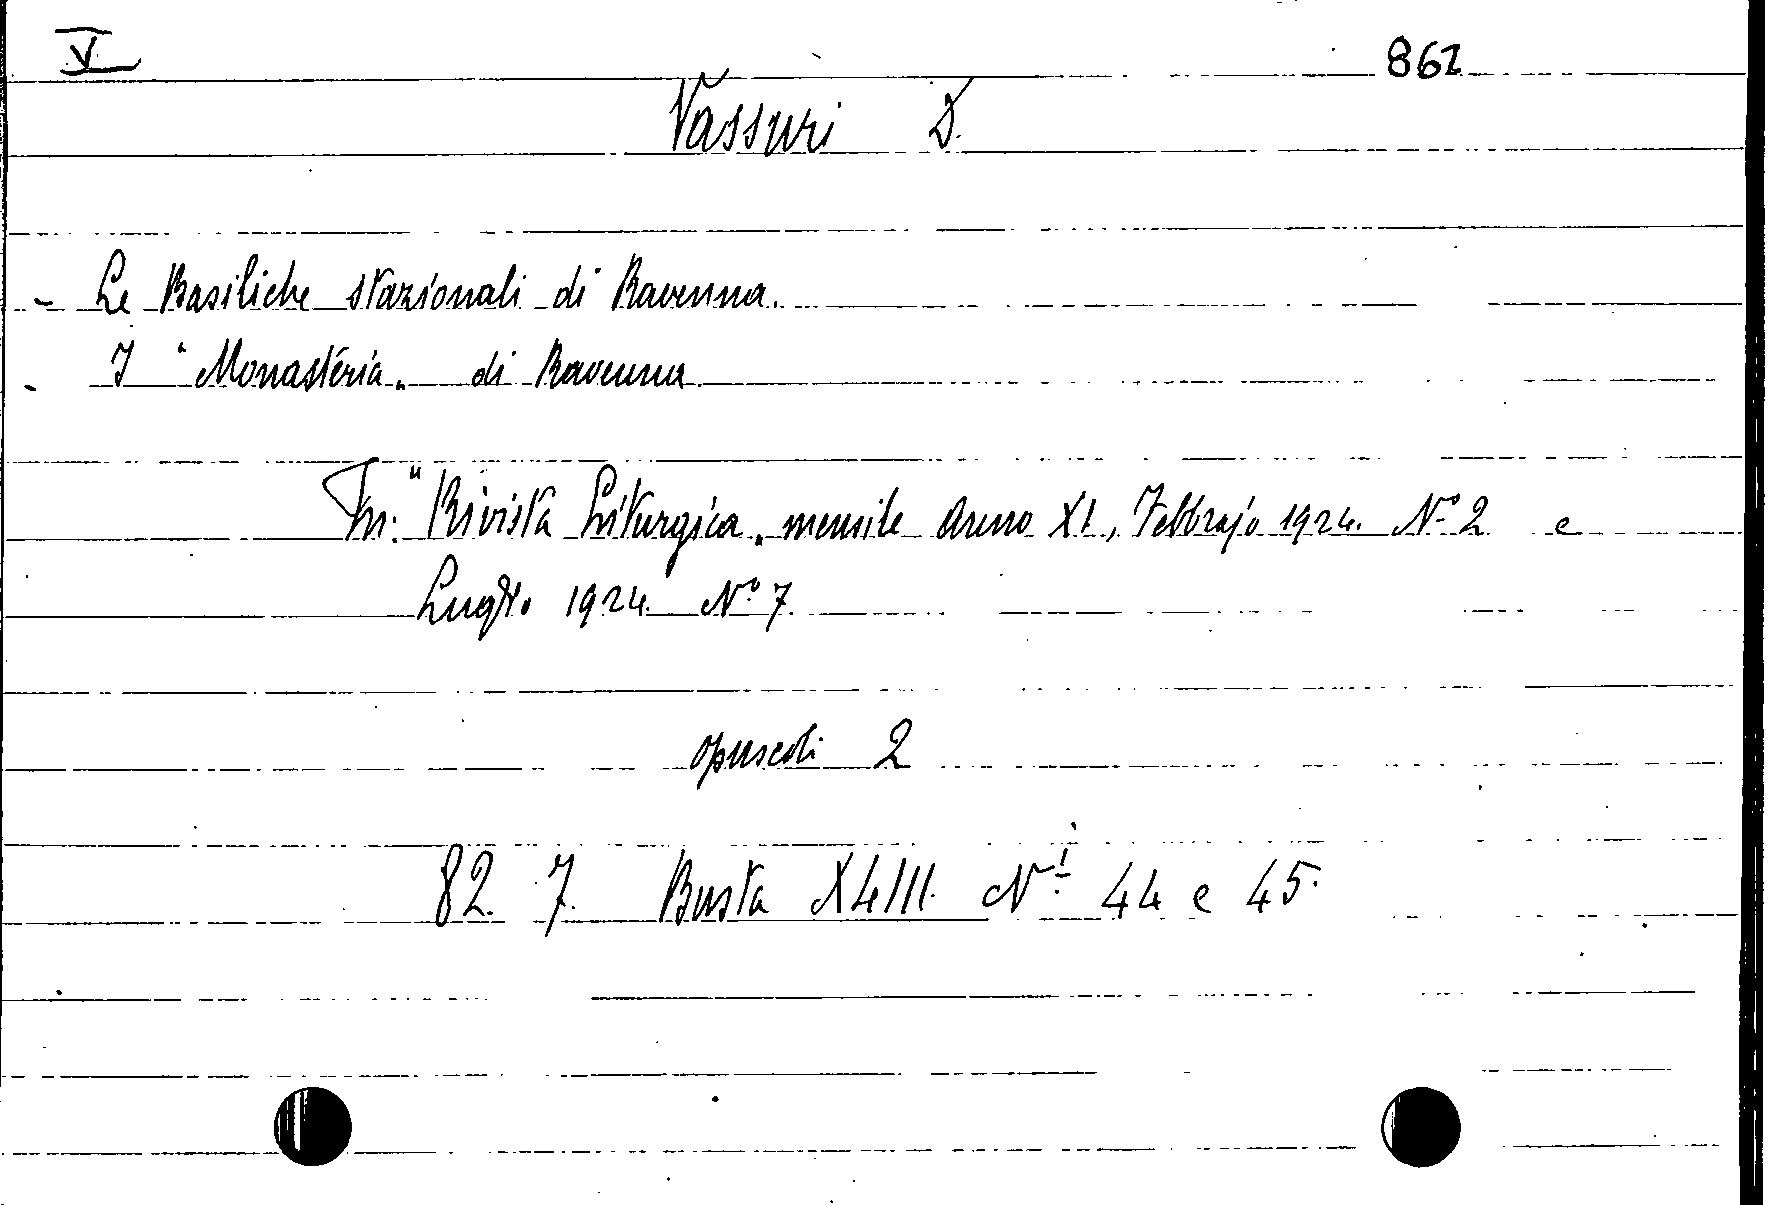 V 862
Vassuri D.
- Le Basiliche stazionali di Ravenna.
- I "Monastéria„ di Ravenna
In: "Rivista Liturgica„ mensile Anno XI, Febbrajo 1924. No 2 e
Luglio 1924. No 7.
opuscoli 2
82. 7. Busta XLIII. Ni 44 e 45.